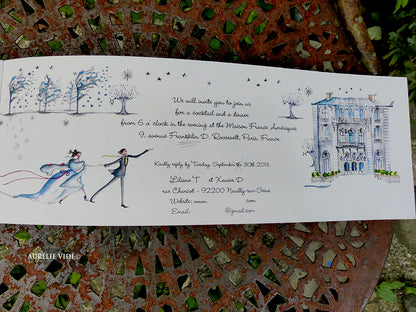 We will invite you to join us
for a cocktail and a dinner
from 6 o'clock in the evening at the Maison France Amériques
9, avenue Franklin D. Roosevelt, Paris, France.
Kindly reply by Tuesday, September 30th 2014.
Liliane T et Xavier D.
rue Charcot - 92200 Neuilly-sur-Seine
Website: www. .com
Email: @gmail.com
AURÉLIE VIDE ©